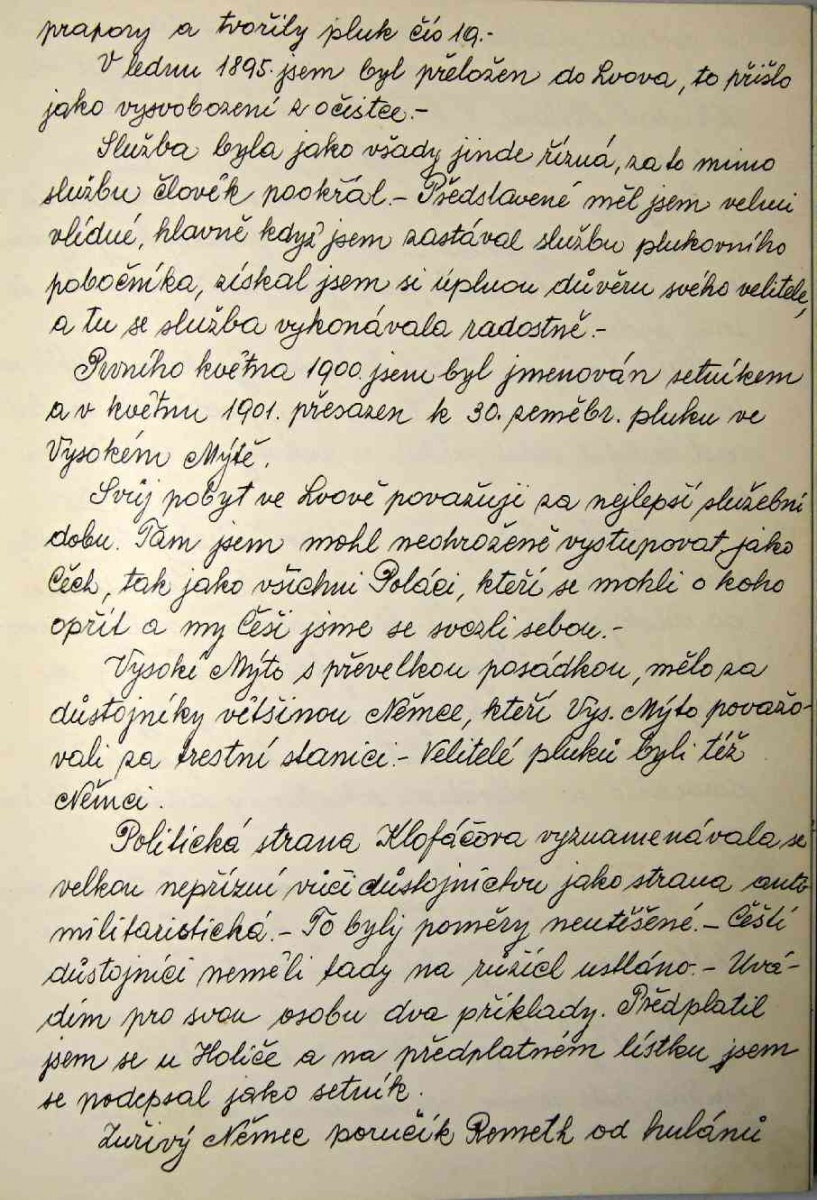 prapory a tvořily pluk čís 19.-
V lednu 1895. jsem byl přeložen do Lvova, to přišlo
jako vysvobození z očistce.-
Služba byla jako všady jinde řízná, za to mimo
službu člověk pookřál.- Představené měl jsem velmi
vlídné, hlavně když jsem zastával službu plukovního
pobočníka, získal jsem si úplnou důvěru svého velitele,
a tu se služba vykonávala radostně.-
Prvního května 1900. jsem byl jmenován setníkem
a v květnu 1901. přesazen k 30. zeměbr. pluku ve
Vysokém Mýtě.
Svůj pobyt ve Lvově považuji za nejlepší služební
dobu. Tam jsem mohl neohroženě vystupovat, jako
Čech, tak jako všichni Poláci, kteří se mohli o koho
opřít a my Češi jsme se svezli sebou.-
Vysoké Mýto s převelkou posádkou, mělo za
důstojníky většinou Němce, kteří Vys. Mýto považo-
vali za trestní stanici.- Velitelé pluků byli též
Němci.
Politická strana Klofáčova vyznamenávala se
velkou nepřízní vůči důstojnictvu jako strana anti
militaristická.- To byly poměry neutěšené.- Čeští
důstojníci neměli tady na růžích ustláno.- Uvá-
dím pro svou osobu dva příklady. Předplatil
jsem se u Holiče a na předplatném lístku jsem
se podepsal jako setník.
Zuřivý Němec poručík Rometh od hulánů